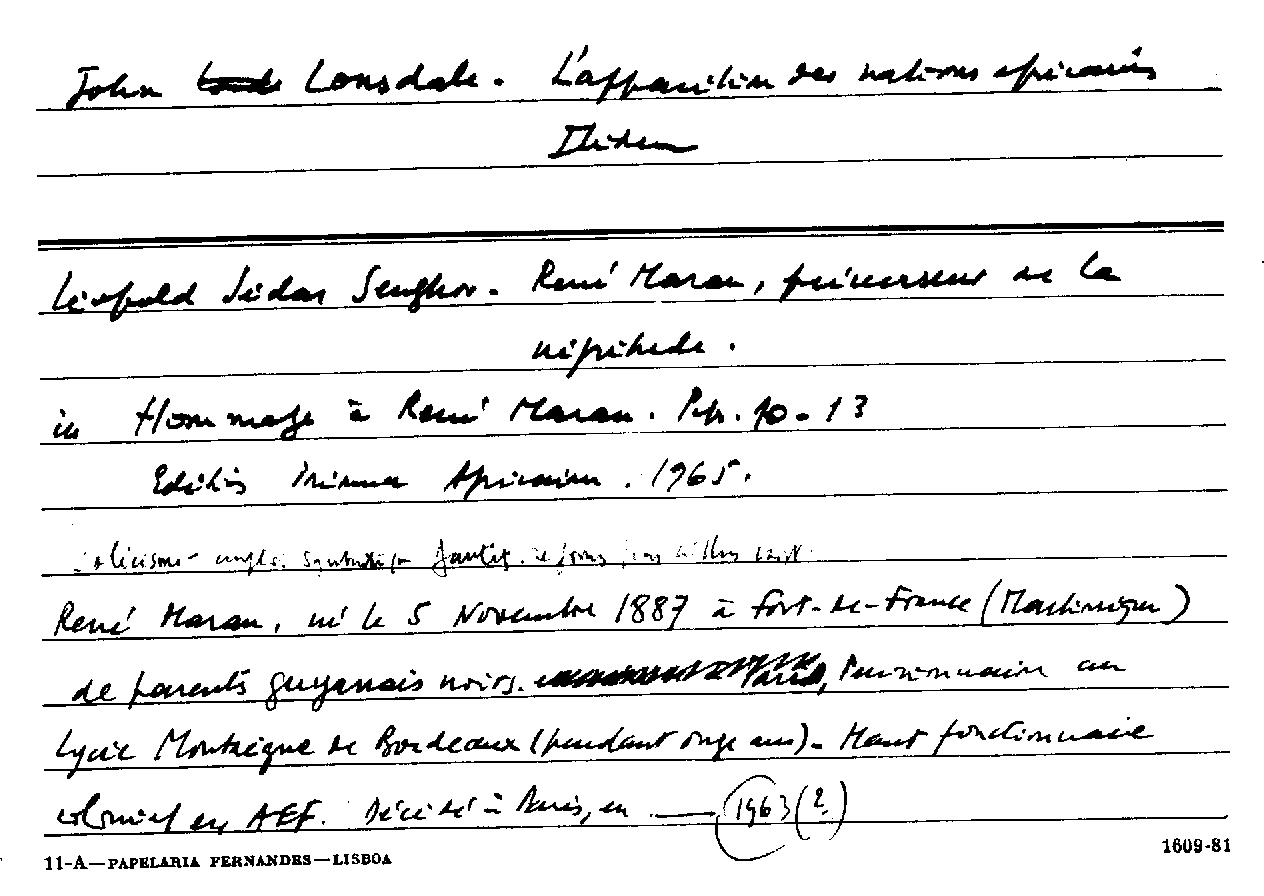 John Lonsdale. L'apparition des nations africaines
Ibidem
Léopold Sédar Senghor. René Maran, précurseur de la
négritude.
in Hommage à René Maran. Pp. 10-13
Editions Présence Africaine. 1965.
René Maran, né le 5 Novembre 1887 à Fort-de-France (Martinique)
de parents guyanais noirs. Pensionnaire au
Lycée Montaigne de Bordeaux (pendant onze ans). Haut fonctionnaire
colonial en AEF. Décédé à Paris, en —— 1963 (?)
11-A—PAPELARIA FERNANDES—LISBOA
1609-81